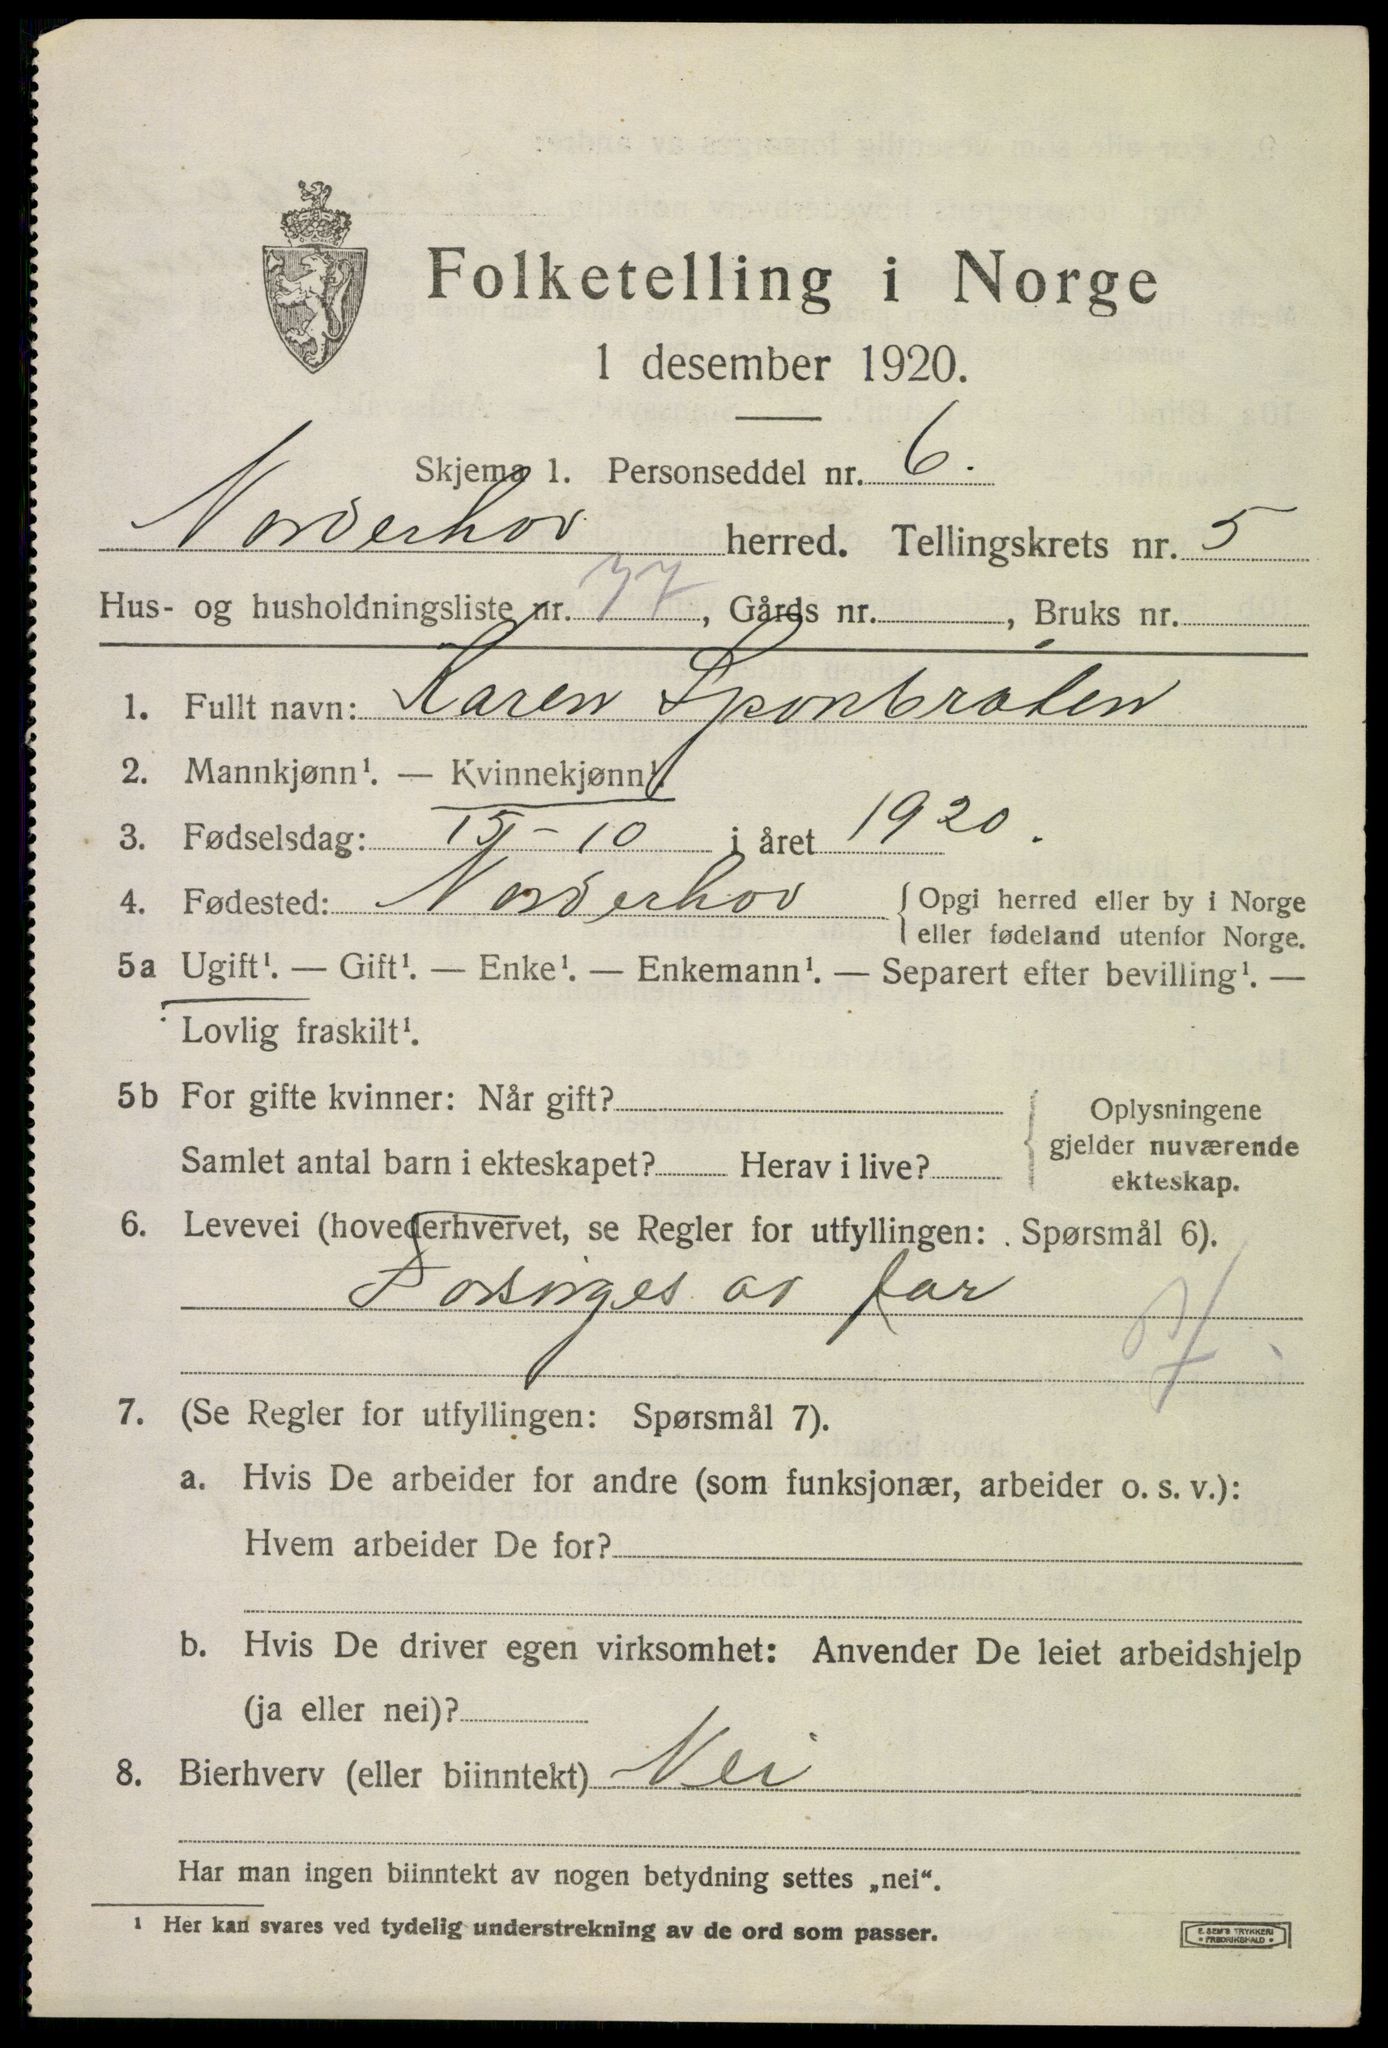 Folketelling i Norge
1 desember 1920.
Skjema 1. Personseddel nr. 6.
Norderhov herred. Tellingskrets nr. 5
Hus- og husholdningsliste nr. 77, Gårds nr. , Bruks nr.
1. Fullt navn: Karen Sponbråten
2. Mannkjønn¹. — Kvinnekjønn¹.
3. Fødselsdag: 15-10 i året 1920.
4. Fødested: Norderhov { Opgi herred eller by i Norge
eller fødeland utenfor Norge.
5a Ugift¹. — Gift¹. — Enke¹. — Enkemann¹. — Separert efter bevilling¹. —
Lovlig fraskilt¹.
5b For gifte kvinner: Når gift?
Samlet antal barn i ekteskapet? Herav i live?
{ Oplysningene
gjelder nuværende
ekteskap.
6. Levevei (hovederhvervet, se Regler for utfyllingen: Spørsmål 6).
Forsørges av far
7. (Se Regler for utfyllingen: Spørsmål 7).
a. Hvis De arbeider for andre (som funksjonær, arbeider o. s. v.):
Hvem arbeider De for?
b. Hvis De driver egen virksomhet: Anvender De leiet arbeidshjelp
(ja eller nei)?
8. Bierhverv (eller biinntekt) Nei
Har man ingen biinntekt av nogen betydning settes „nei“.
¹ Her kan svares ved tydelig understrekning av de ord som passer.
E. SEM'S TRYKKERI
FREDRIKSHALD